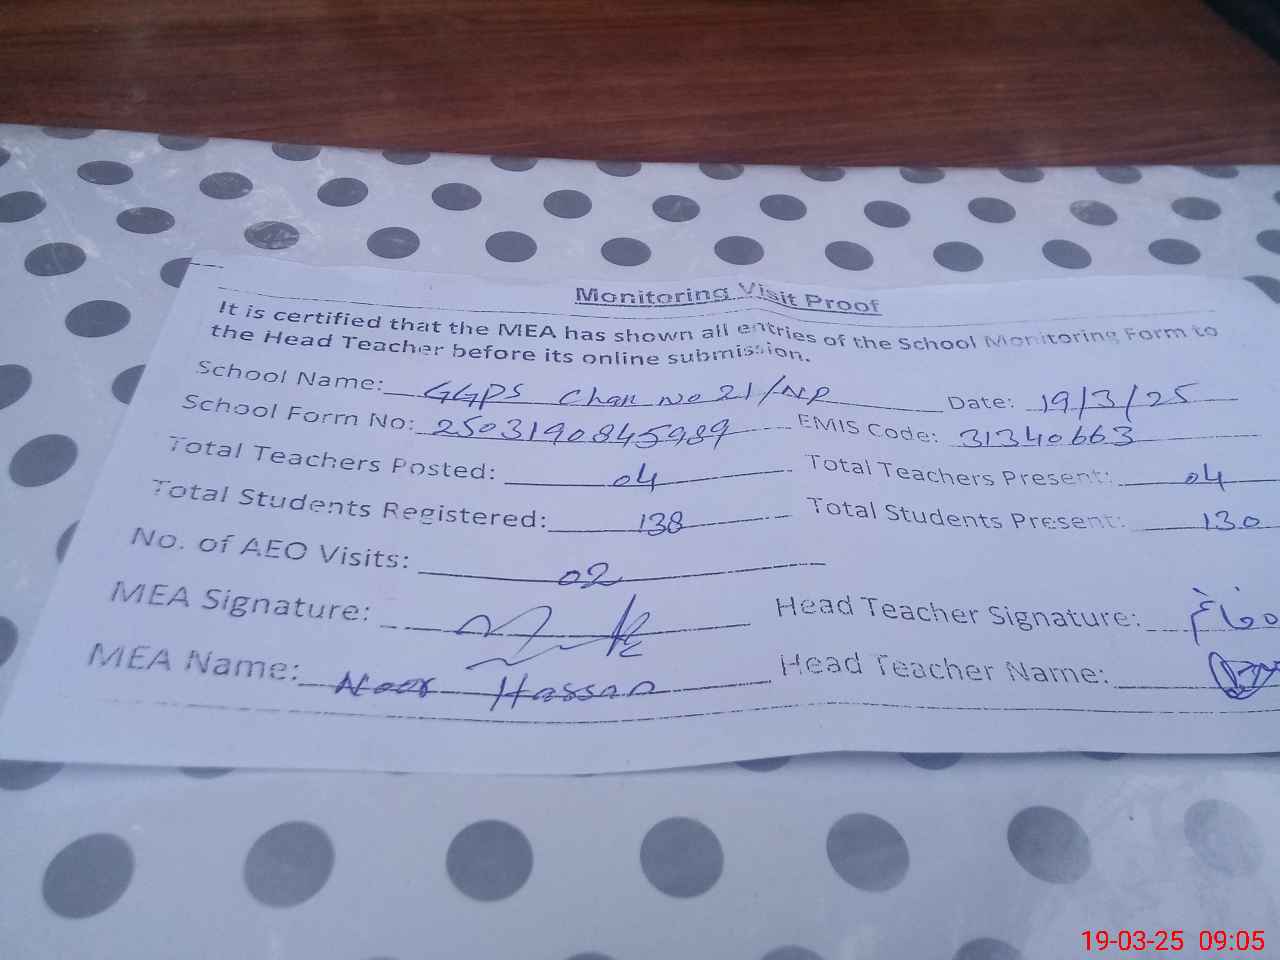 Monitoring Visit Proof
It is certified that the MEA has shown all entries of the School Monitoring Form to
the Head Teacher before its online submission.
School Name: GGPS Chak No 21/NP Date: 19/3/25
School Form No: 2503190845989 EMIS Code: 31340663
Total Teachers Posted: 04 Total Teachers Present: 04
Total Students Registered: 138 Total Students Present: 130
No. of AEO Visits: 02
MEA Signature: Head Teacher Signature:
MEA Name: Noor Hassan Head Teacher Name:
19-03-25 09:05